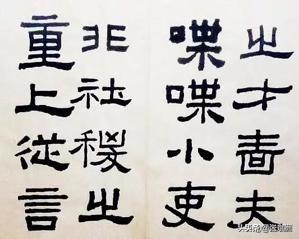 之才嗇夫
喋喋小吏
非社稷之
重上從言